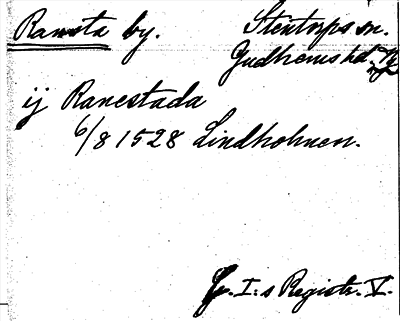 Ramsta by. Stentorps sn.
Gudhems hd.
ij Ranestada
6/8 1528 Lindholmen.
G. I:s Registr. V.